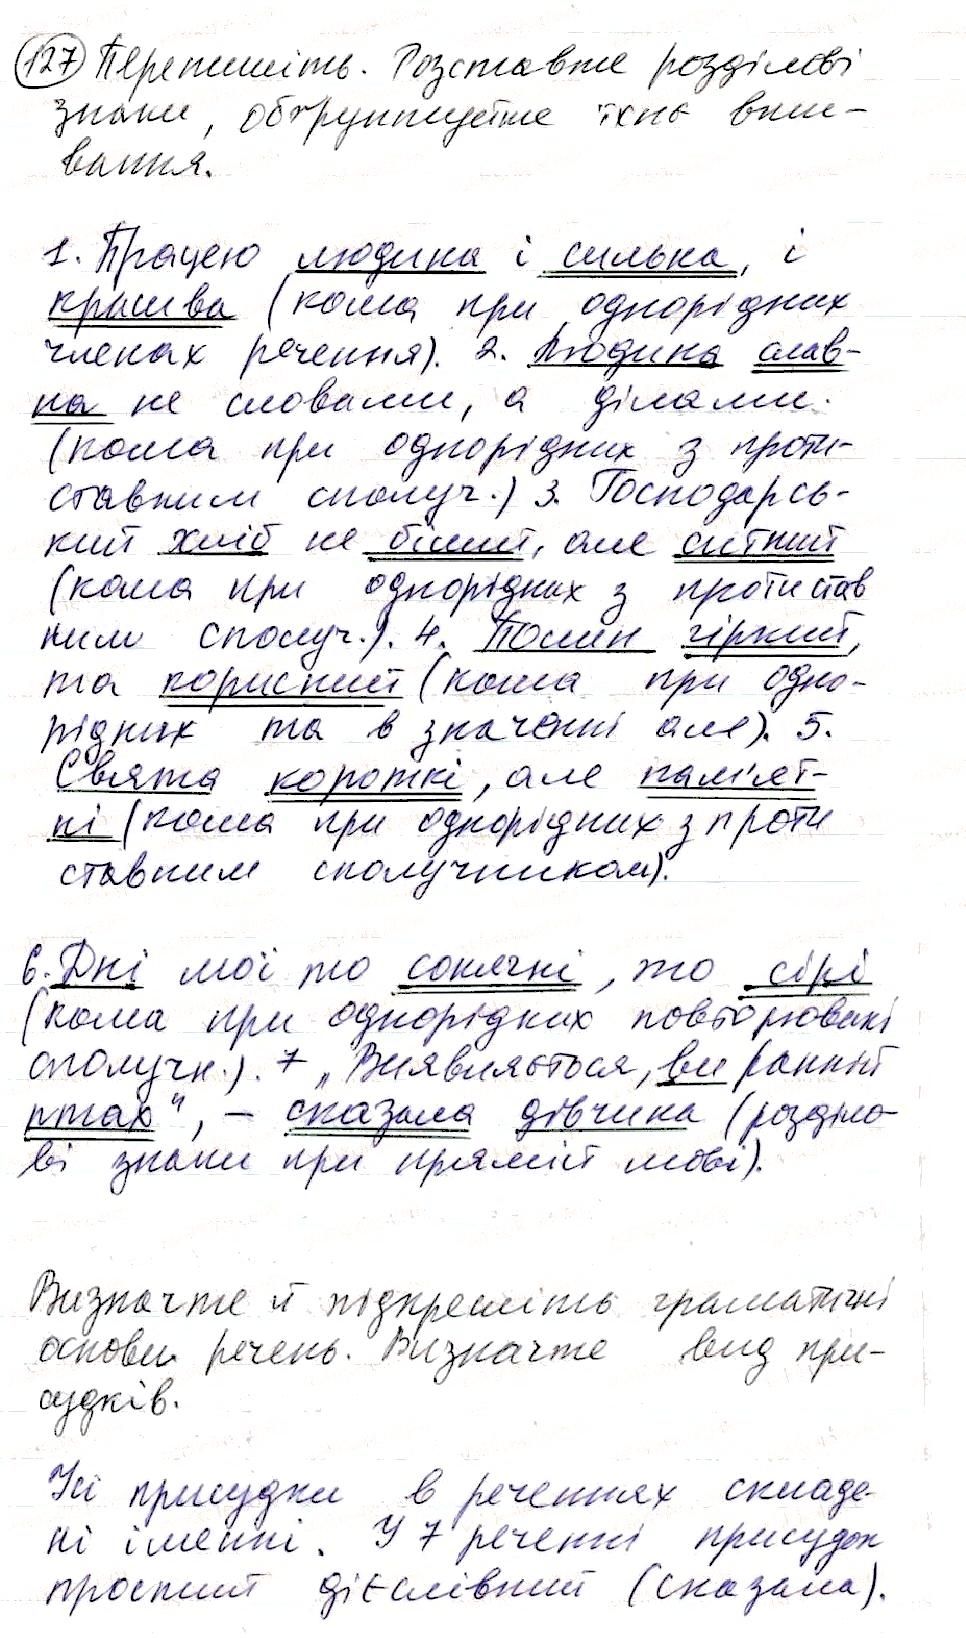 127 Перепишіть. Розставте розділові
знаки, обґрунтуйте їхнє вжи-
вання.
1. Працею людина і сильна, і
красива (кома при однорідних
членах речення). 2. Людина слав-
на не словами, а ділами.
(кома при однорідних з проти-
ставним сполуч.) 3. Господарсь-
кий хліб не білий, але ситний
(кома при однорідних з протистав
ним сполуч.). 4. Полин гіркий,
та корисний (кома при одно-
рідних та в значенні але). 5.
Свята короткі, але пам'ят-
ні (кома при однорідних з проти
ставним сполучником).
6. Дні мої то сонячні, то сірі
(кома при однорідних повторювані
сполучн.). 7 „Виявляється, ви ранній
птах", – сказала дівчина (розділо-
ві знаки при прямій мові).
Визначте й підкресліть граматичні
основи речень. Визначте вид при-
судків.
Усі присудки в реченнях складе-
ні іменні. У 7 реченні присудок
простий дієслівний (сказала).